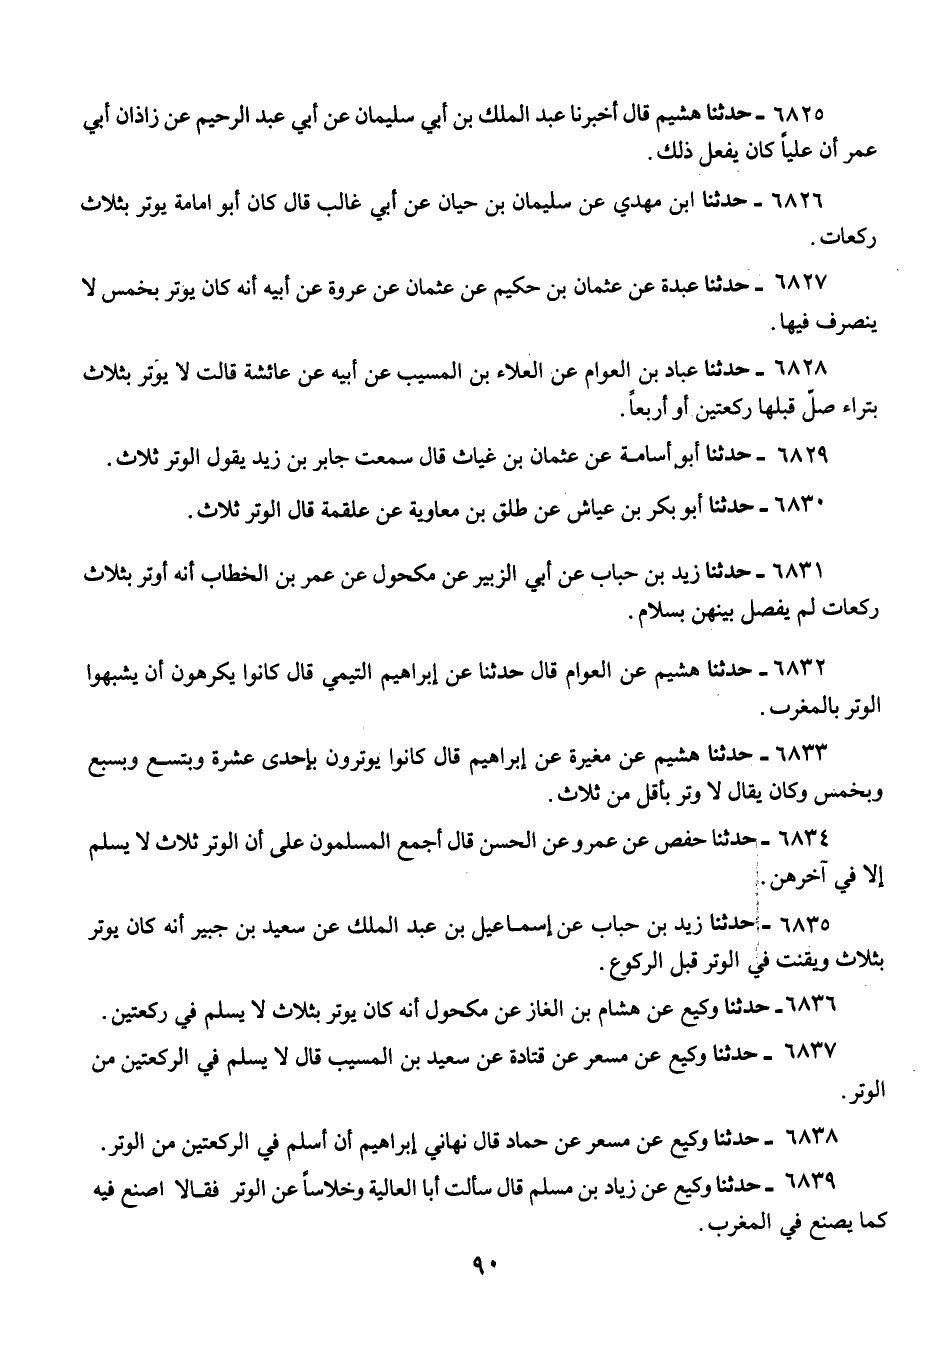 ٦٨٢٥ ـ حدثنا هشيم قال أخبرنا عبد الملك بن أبي سليمان عن أبي عبد الرحيم عن زاذان أبي
عمر أن علياً كان يفعل ذلك .
٦٨٢٦ ـ حدثنا ابن مهدي عن سليمان بن حيان عن أبي غالب قال كان أبو امامة يوتر بثلاث
ركعات .
٦٨٢٧ ـ حدثنا عبدة عن عثمان بن حكيم عن عثمان عن عروة عن أبيه أنه كان يوتر بخمس لا
ينصرف فيها .
٦٨٢٨ ـ حدثنا عباد بن العوام عن العلاء بن المسيب عن أبيه عن عائشة قالت لا يوتر بثلاث
بتراء صلّ قبلها ركعتين أو أربعاً .
٦٨٢٩ ـ حدثنا أبو أسامة عن عثمان بن غياث قال سمعت جابر بن زيد يقول الوتر ثلاث .
٦٨٣٠ ـ حدثنا أبو بكر بن عياش عن طلق بن معاوية عن علقمة قال الوتر ثلاث .
٦٨٣١ ـ حدثنا زيد بن حباب عن أبي الزبير عن مكحول عن عمر بن الخطاب أنه أوتر بثلاث
ركعات لم يفصل بينهن بسلام .
٦٨٣٢ ـ حدثنا هشيم عن العوام قال حدثنا عن إبراهيم التيمي قال كانوا يكرهون أن يشبهوا
الوتر بالمغرب .
٦٨٣٣ ـ حدثنا هشيم عن مغيرة عن إبراهيم قال كانوا يوترون بإحدى عشرة وبتسع وبسبع
وبخمس وكان يقال لا وتر بأقل من ثلاث .
٦٨٣٤ ـ حدثنا حفص عن عمرو عن الحسن قال أجمع المسلمون على أن الوتر ثلاث لا يسلم
إلا في آخرهن .
٦٨٣٥ ـ حدثنا زيد بن حباب عن إسماعيل بن عبد الملك عن سعيد بن جبير أنه كان يوتر
بثلاث ويقنت في الوتر قبل الركوع .
٦٨٣٦ ـ حدثنا وكيع عن هشام بن الغاز عن مكحول أنه كان يوتر بثلاث لا يسلم في ركعتين .
٦٨٣٧ ـ حدثنا وكيع عن مسعر عن قتادة عن سعيد بن المسيب قال لا يسلم في الركعتين من
الوتر .
٦٨٣٨ ـ حدثنا وكيع عن مسعر عن حماد قال نهاني إبراهيم أن أسلم في الركعتين من الوتر .
٦٨٣٩ ـ حدثنا وكيع عن زياد بن مسلم قال سألت أبا العالية وخلاساً عن الوتر فقالا اصنع فيه
كما يصنع في المغرب .
٩٠